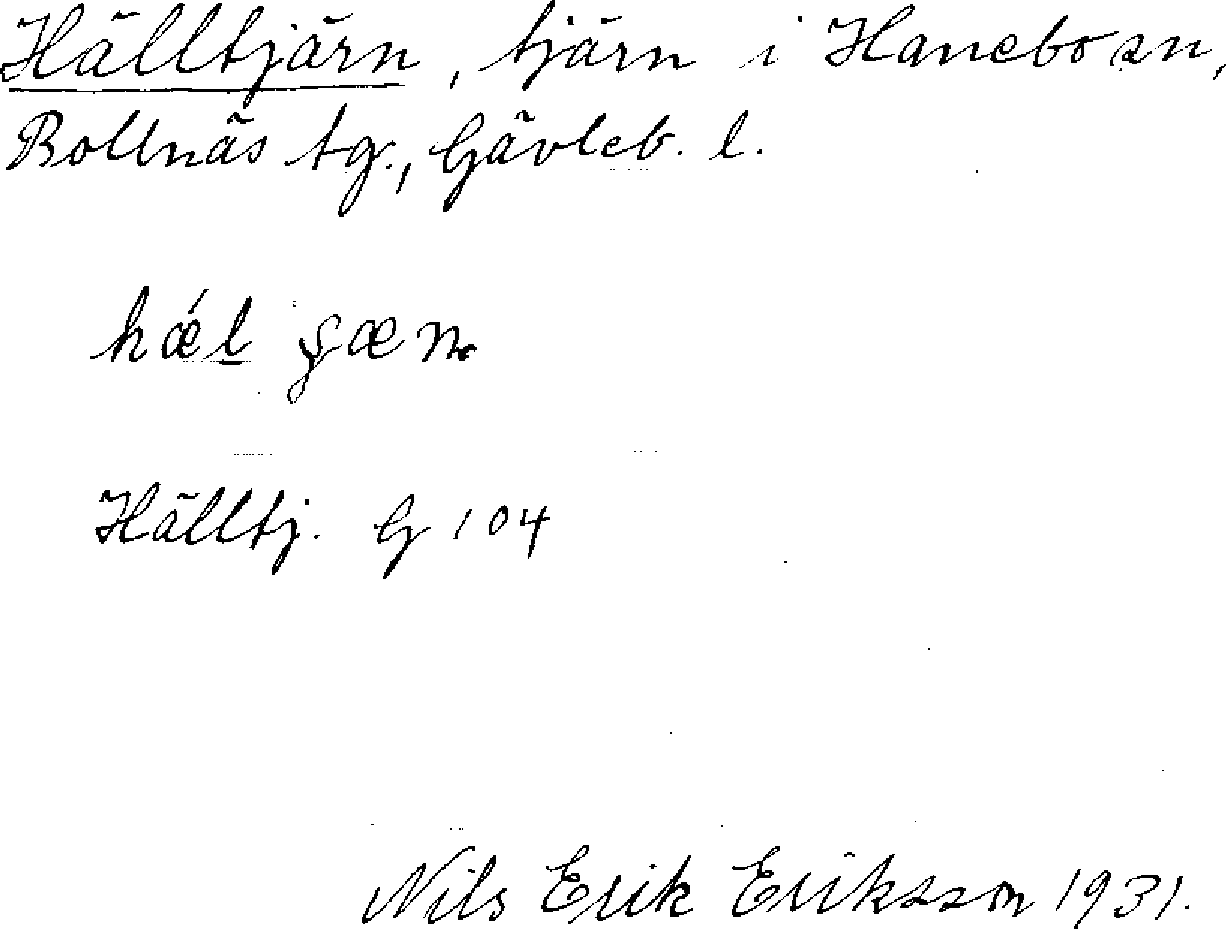 Hälltjärn, tjärn i Hanebo sn,
Bollnäs tg., Gävleb. l.
Hälltj. G 104
Nils Erik Eriksson 1931.